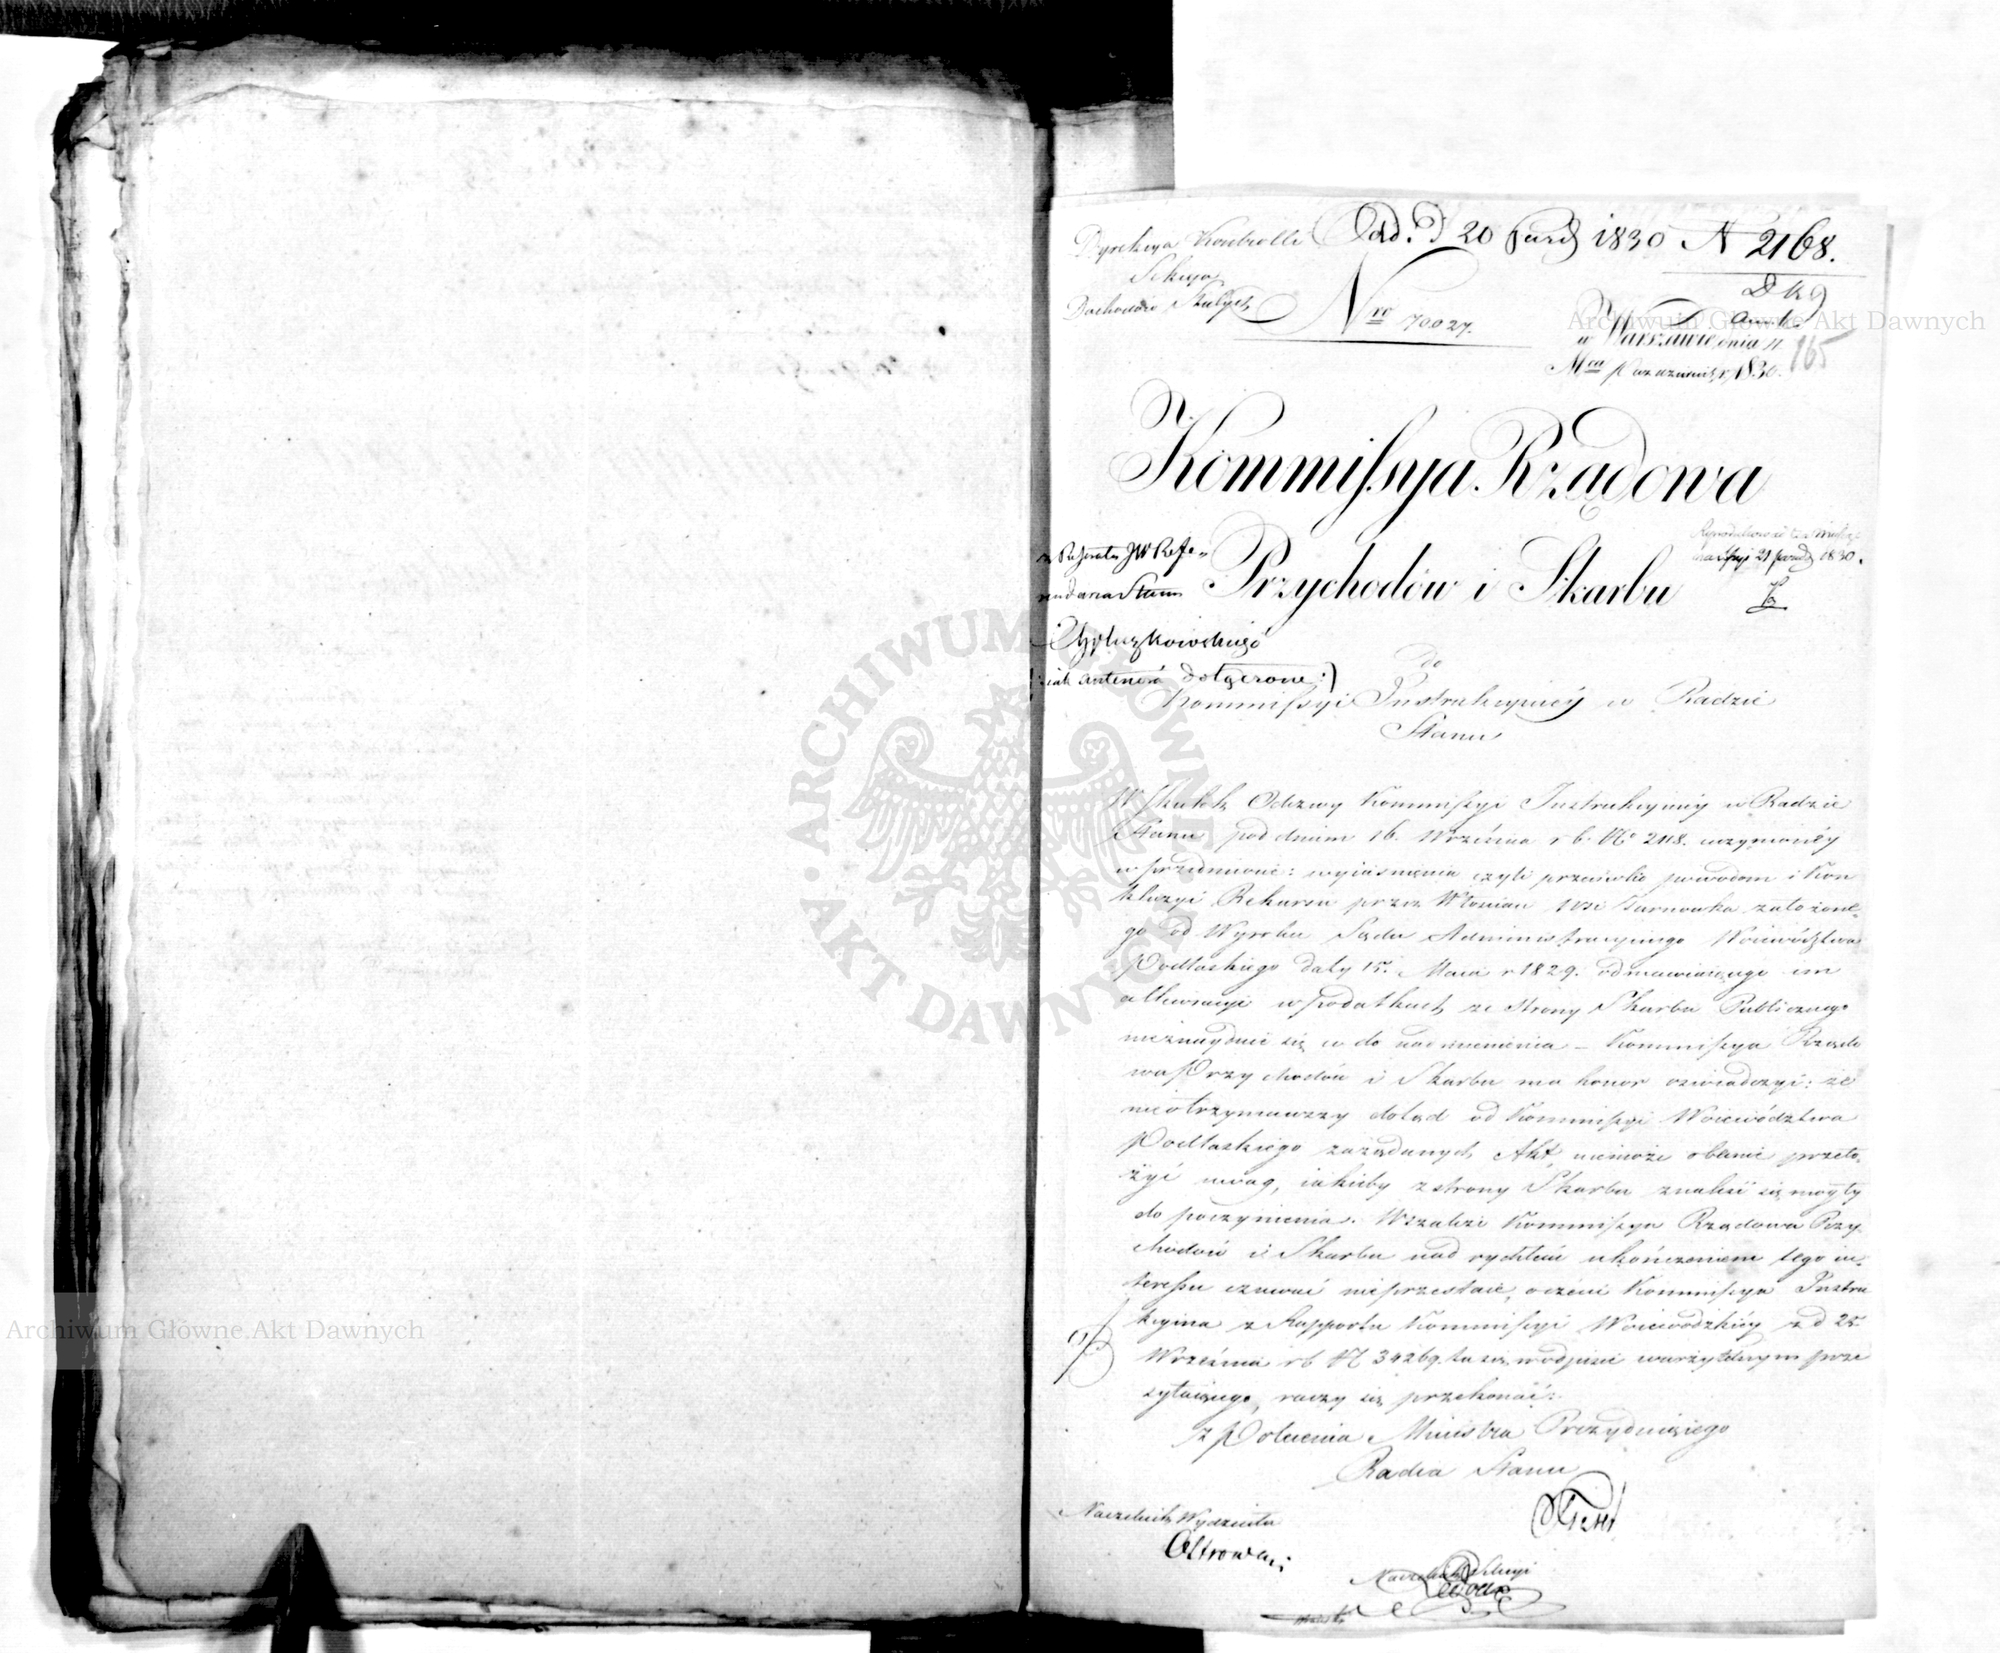 Dyrekcya Kontrolli
Sekcya
Dochodów Stałych
Odd. D 20 Paźd 1830 N 2168.
DKg
Nro 70027.
w Warszawie, dnia 11
Mca Października r. 1830.
165
Kommissya Rządowa
Przychodów i Skarbu
21 Paźd 1830.
do Referatu JW Refe-
rendarza Stanu
iak antenora dołączone :)
Do
Kommissyi Instrukcyiney w Radzie
Stanu
W skutek Odezwy Kommissyi Instrukcyiney w Radzie
Stanu pod dniem 16. Września r b. No 2118. uczynioney
w przedmiocie: wyiaśnienia czyli przeciwko powodom i Kon
kluzyi Rekursu przez Włościan wsi Turnowka założone-
go od Wyroku Sądu Administracyinego Woiewództwa
Podlaskiego daty 15. Maia r 1829. odmawiaiącego im
allewiacyi w podatkach ze strony Skarbu Publicznego
nieznayduie się co do nadmienienia – Kommissya Rządo
wa Przychodów i Skarbu ma honor oświadczyć: że
nieotrzymawszy dotąd od Kommissyi Woiewództwa
Podlaskiego zażądanych Akt, niemoże obecnie przeło-
żyć uwag, iakieby z strony Skarbu znaleść się mogły
do poczynienia. Wszakże Kommissya Rządowa Przy-
chodów i Skarbu nad rychłém ukończeniem tego in-
teressu czuwać nieprzestaie, oczém Kommissya Instru
kcyina z Rapportu Kommissyi Woiewódzkiéy z d 25
Września r b N 34269. tu się w odpisie wierzytelnym prze
syłaiącego, raczy się przekonać:
z Polecenia Ministra Prezyduiącego
Radca Stanu
Naczelnik Wydziału
Ostrowski
Naczelnik Sekcyi
Archiwum Główne Akt Dawnych
Archiwum Główne Akt Dawnych
ARCHIWUM GŁÓWNE AKT DAWNYCH